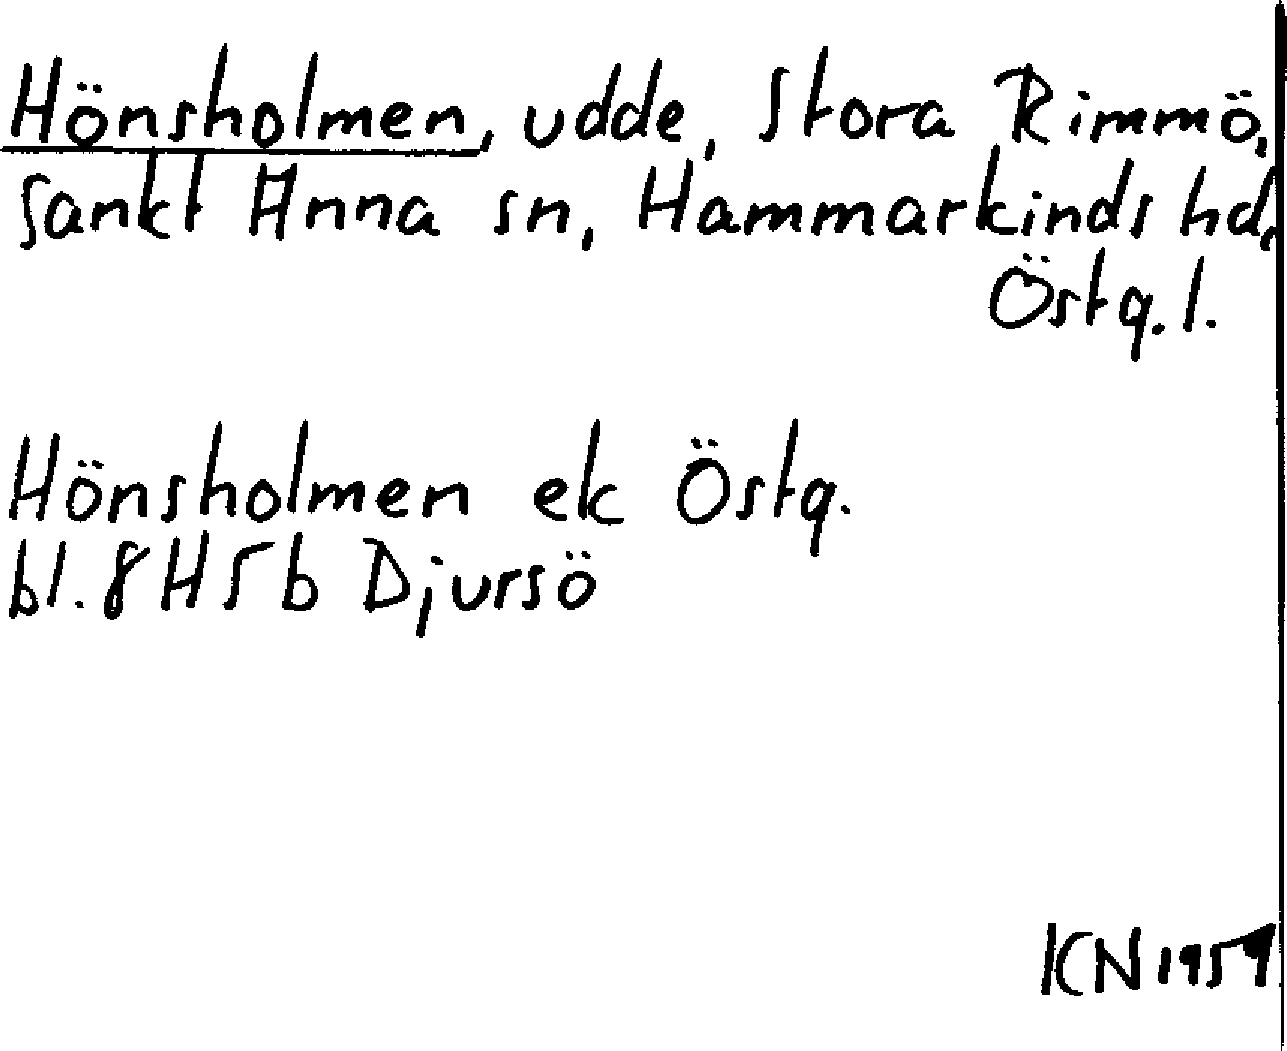 Hönsholmen, udde, Stora Rimmö,
Sankt Anna sn, Hammarkinds hd,
Östg. l.
Hönsholmen ek Östg.
bl. 8 H 5 b Djursö
KN 1959